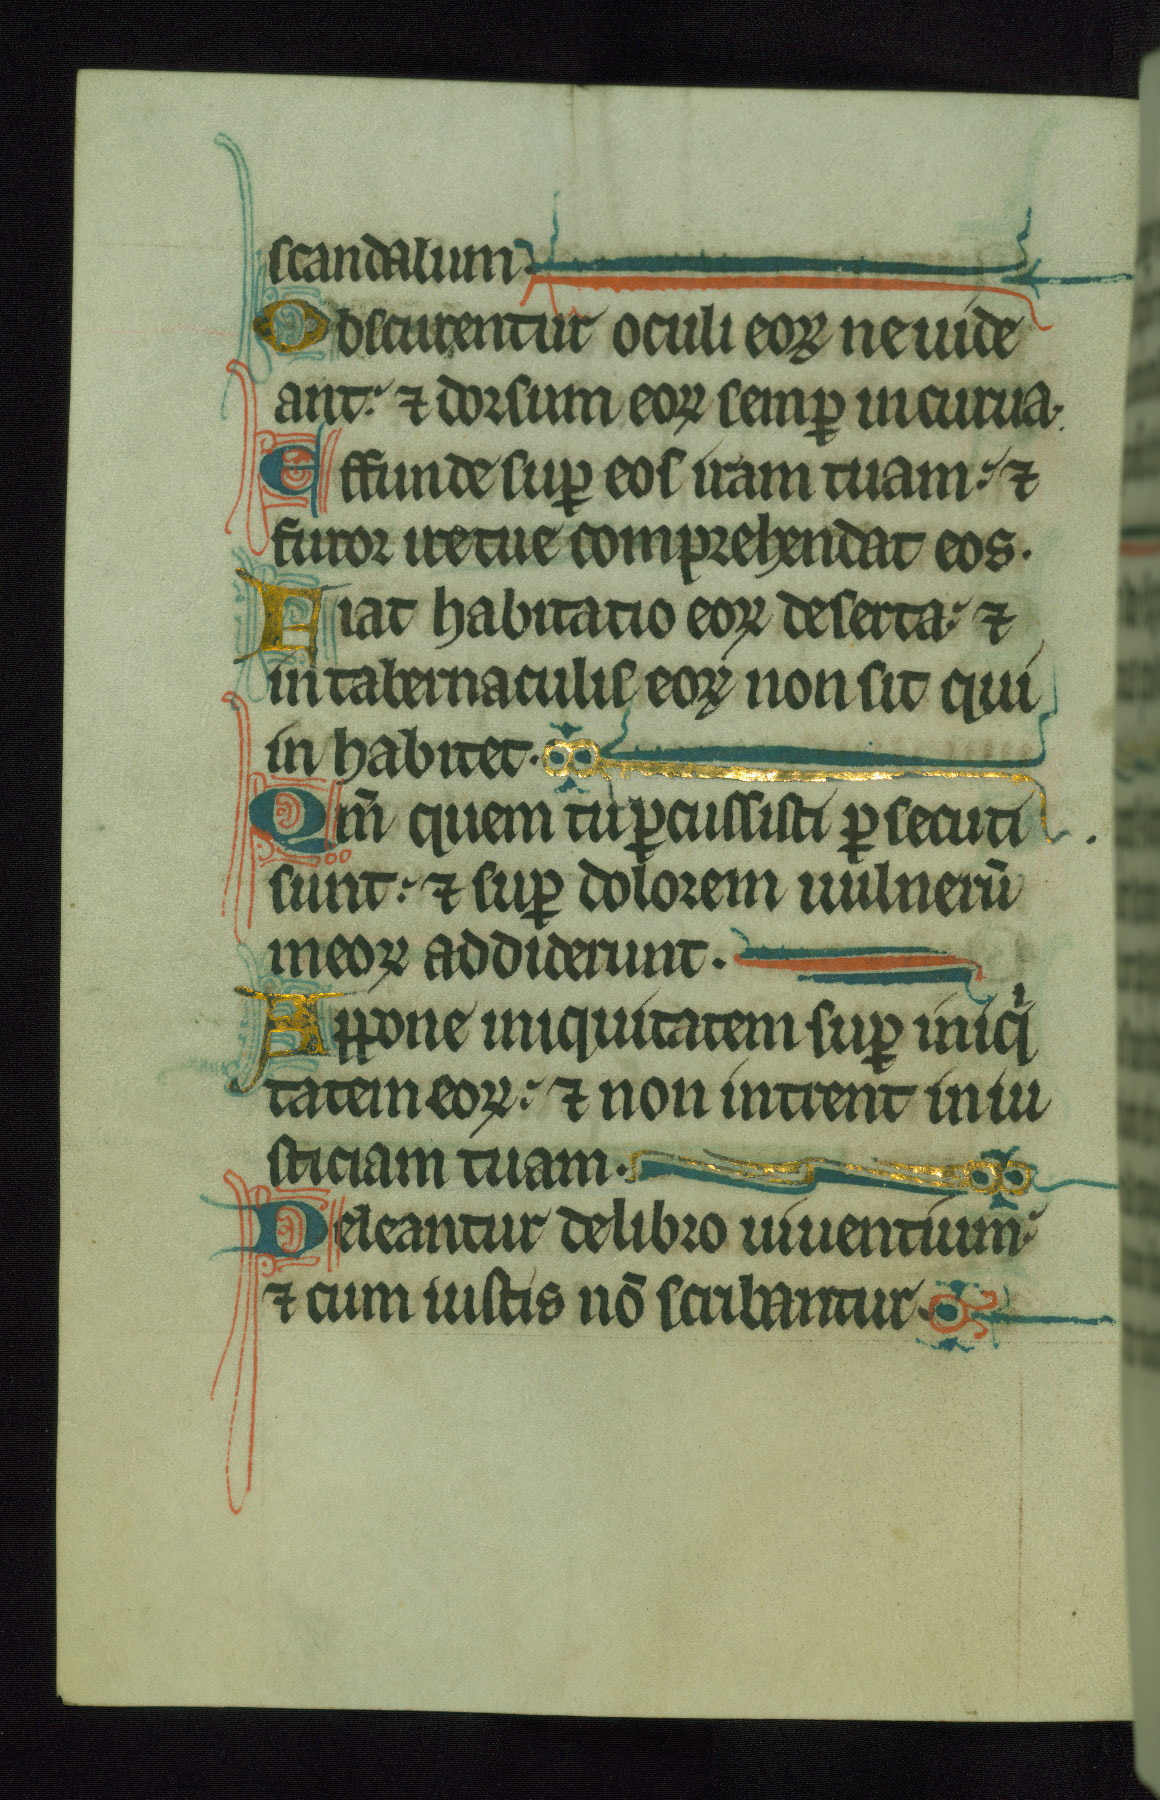 scandalum
Obscurentur oculi eoꝝ ne uide
ant: ⁊ dorsum eoꝝ semꝑ incurua.
Effunde suꝑ eos iram tuam: ⁊
furor ire tue comprehendat eos.
Fiat habitatio eoꝝ deserta: ⁊
in tabernaculis eoꝝ non sit qui
in habitet.
Qm̄ quem tu ꝑcussisti ꝑsecuti
sunt: ⁊ suꝑ dolorem uulnerū
meoꝝ addiderunt.
Appone iniquitatem suꝑ iniqͥ
tatem eoꝝ: ⁊ non intrent in iu
sticiam tuam.
Deleantur de libro uiuentium:
⁊ cum iustis nō scribantur.